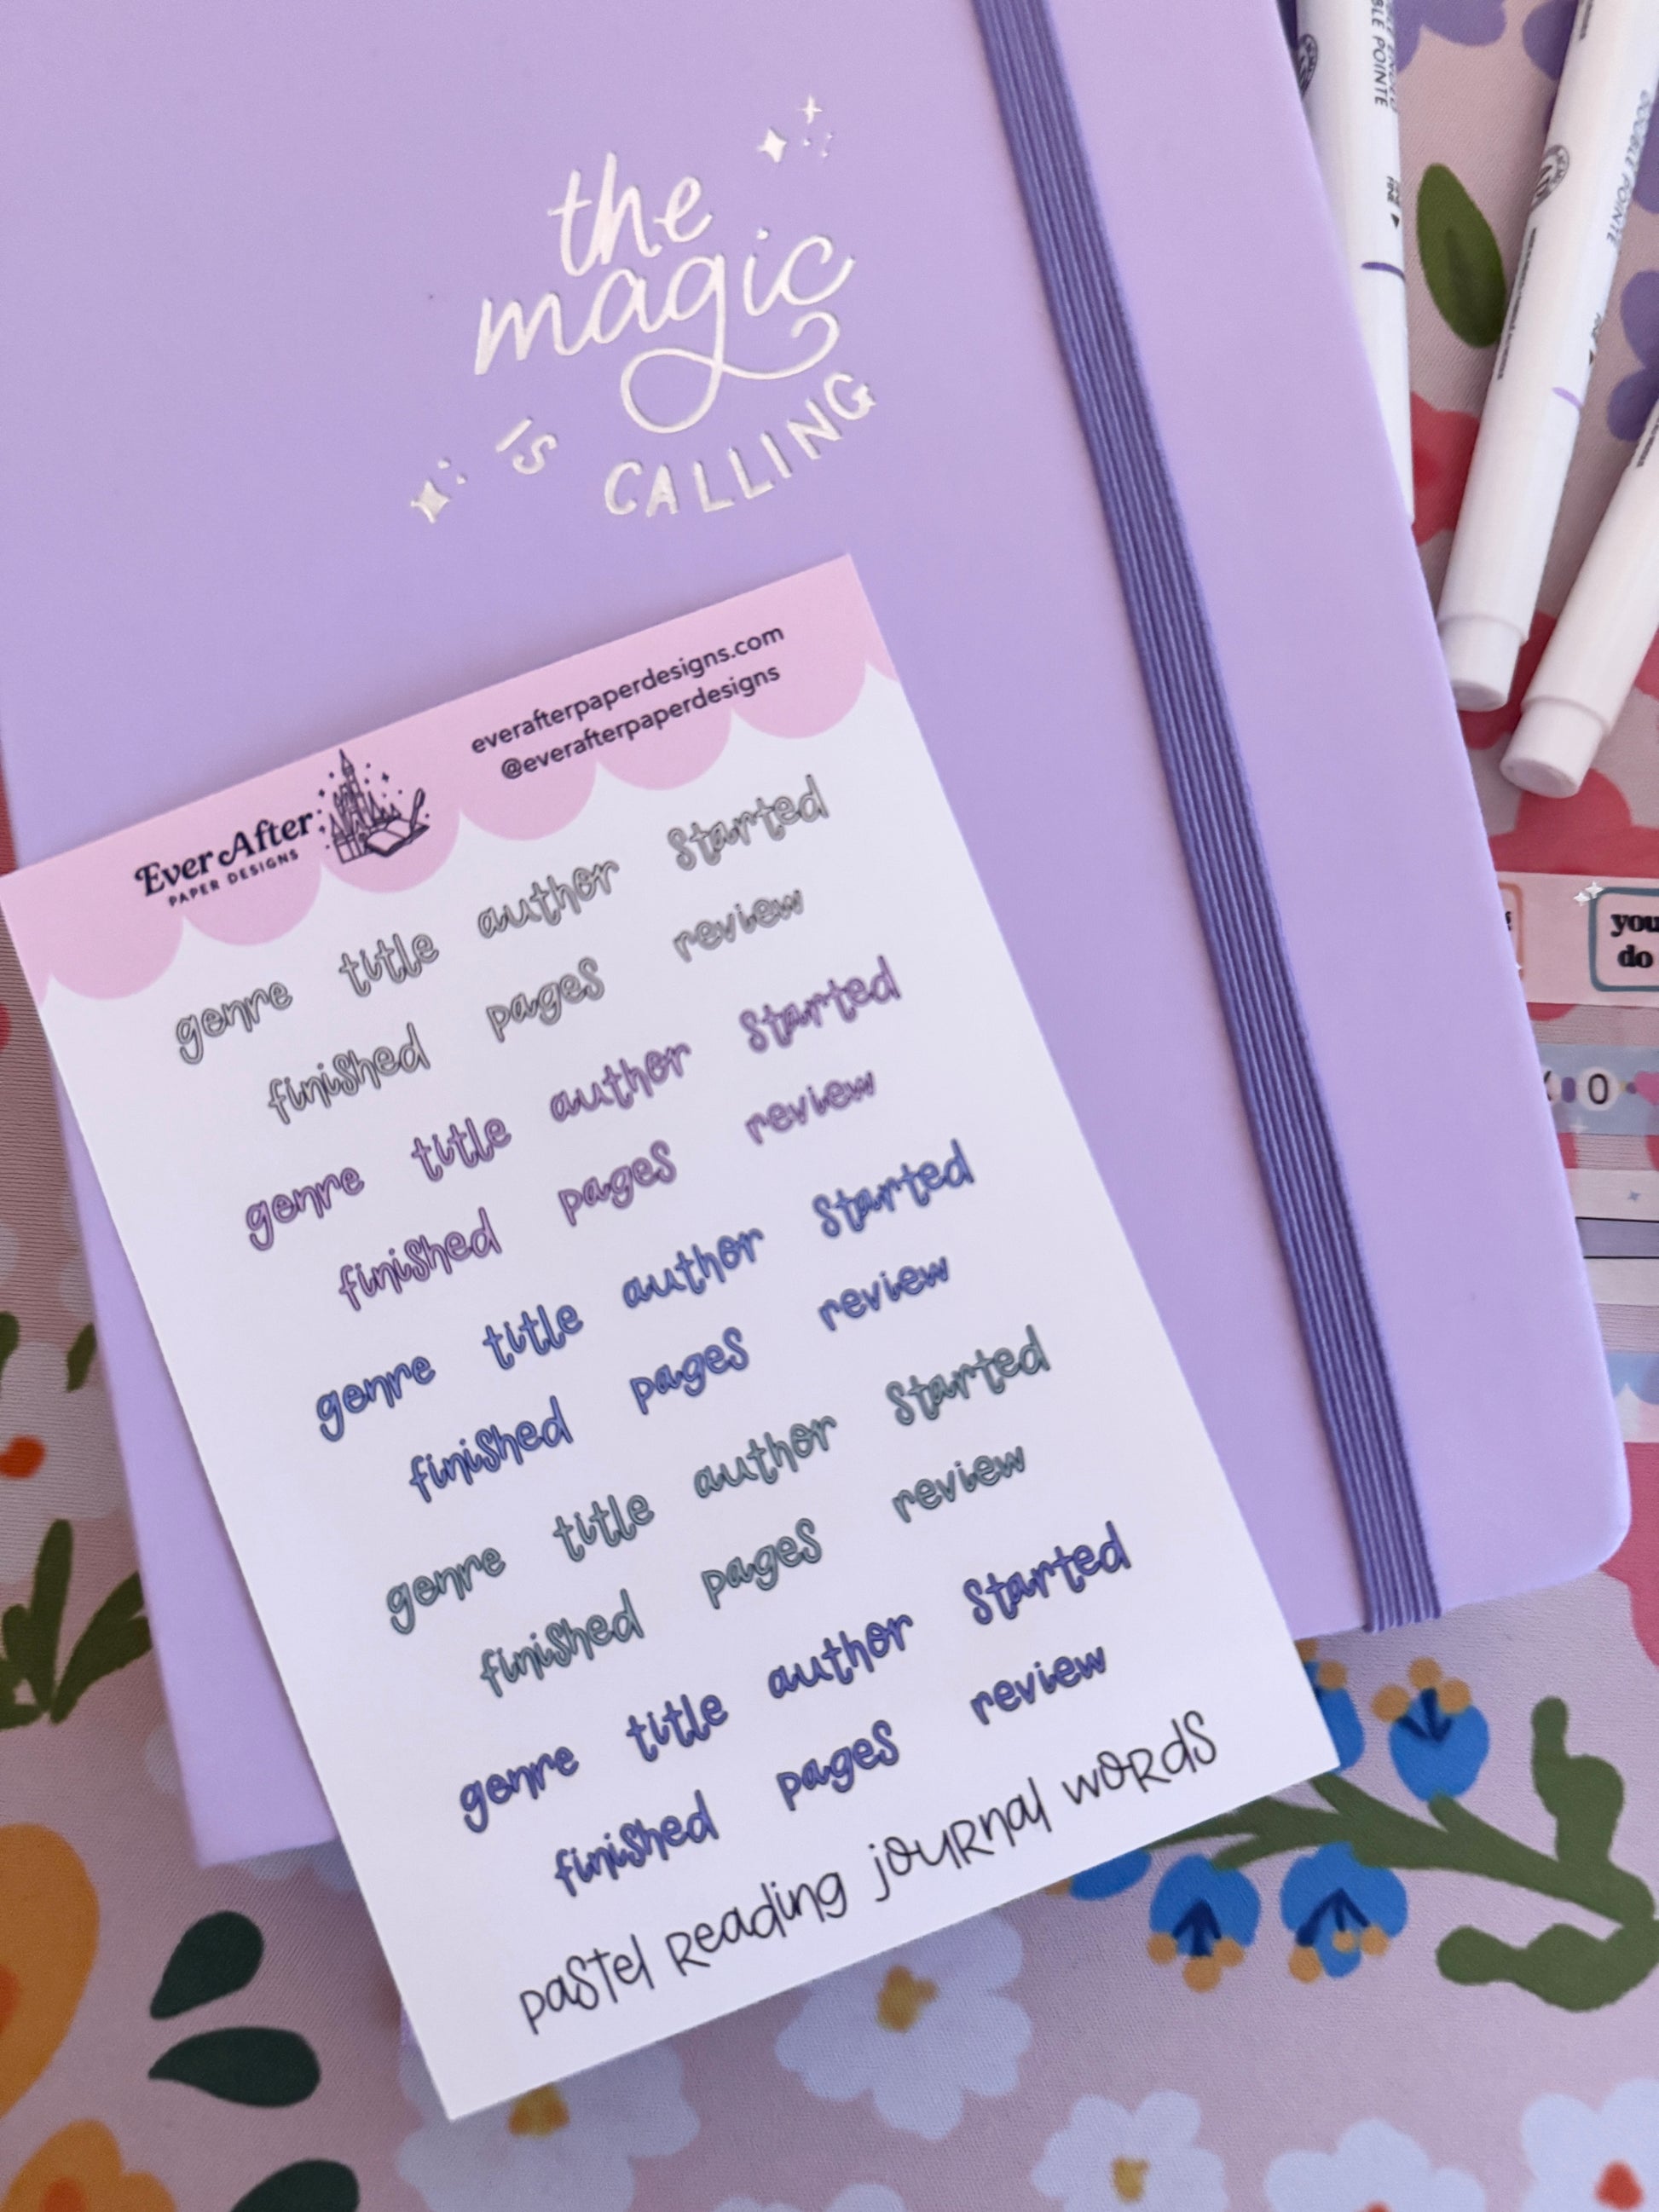 the
magic
IS CALLING
everafterpaperdesigns.com
@everafterpaperdesigns
Ever After
PAPER DESIGNS
genre title author started
finished pages review
genre title author started
finished pages review
genre title author started
finished pages review
genre title author started
finished pages review
genre title author started
finished pages review
pastel reading journal words
POINTE
DOUBLE POINTE
you
do
0